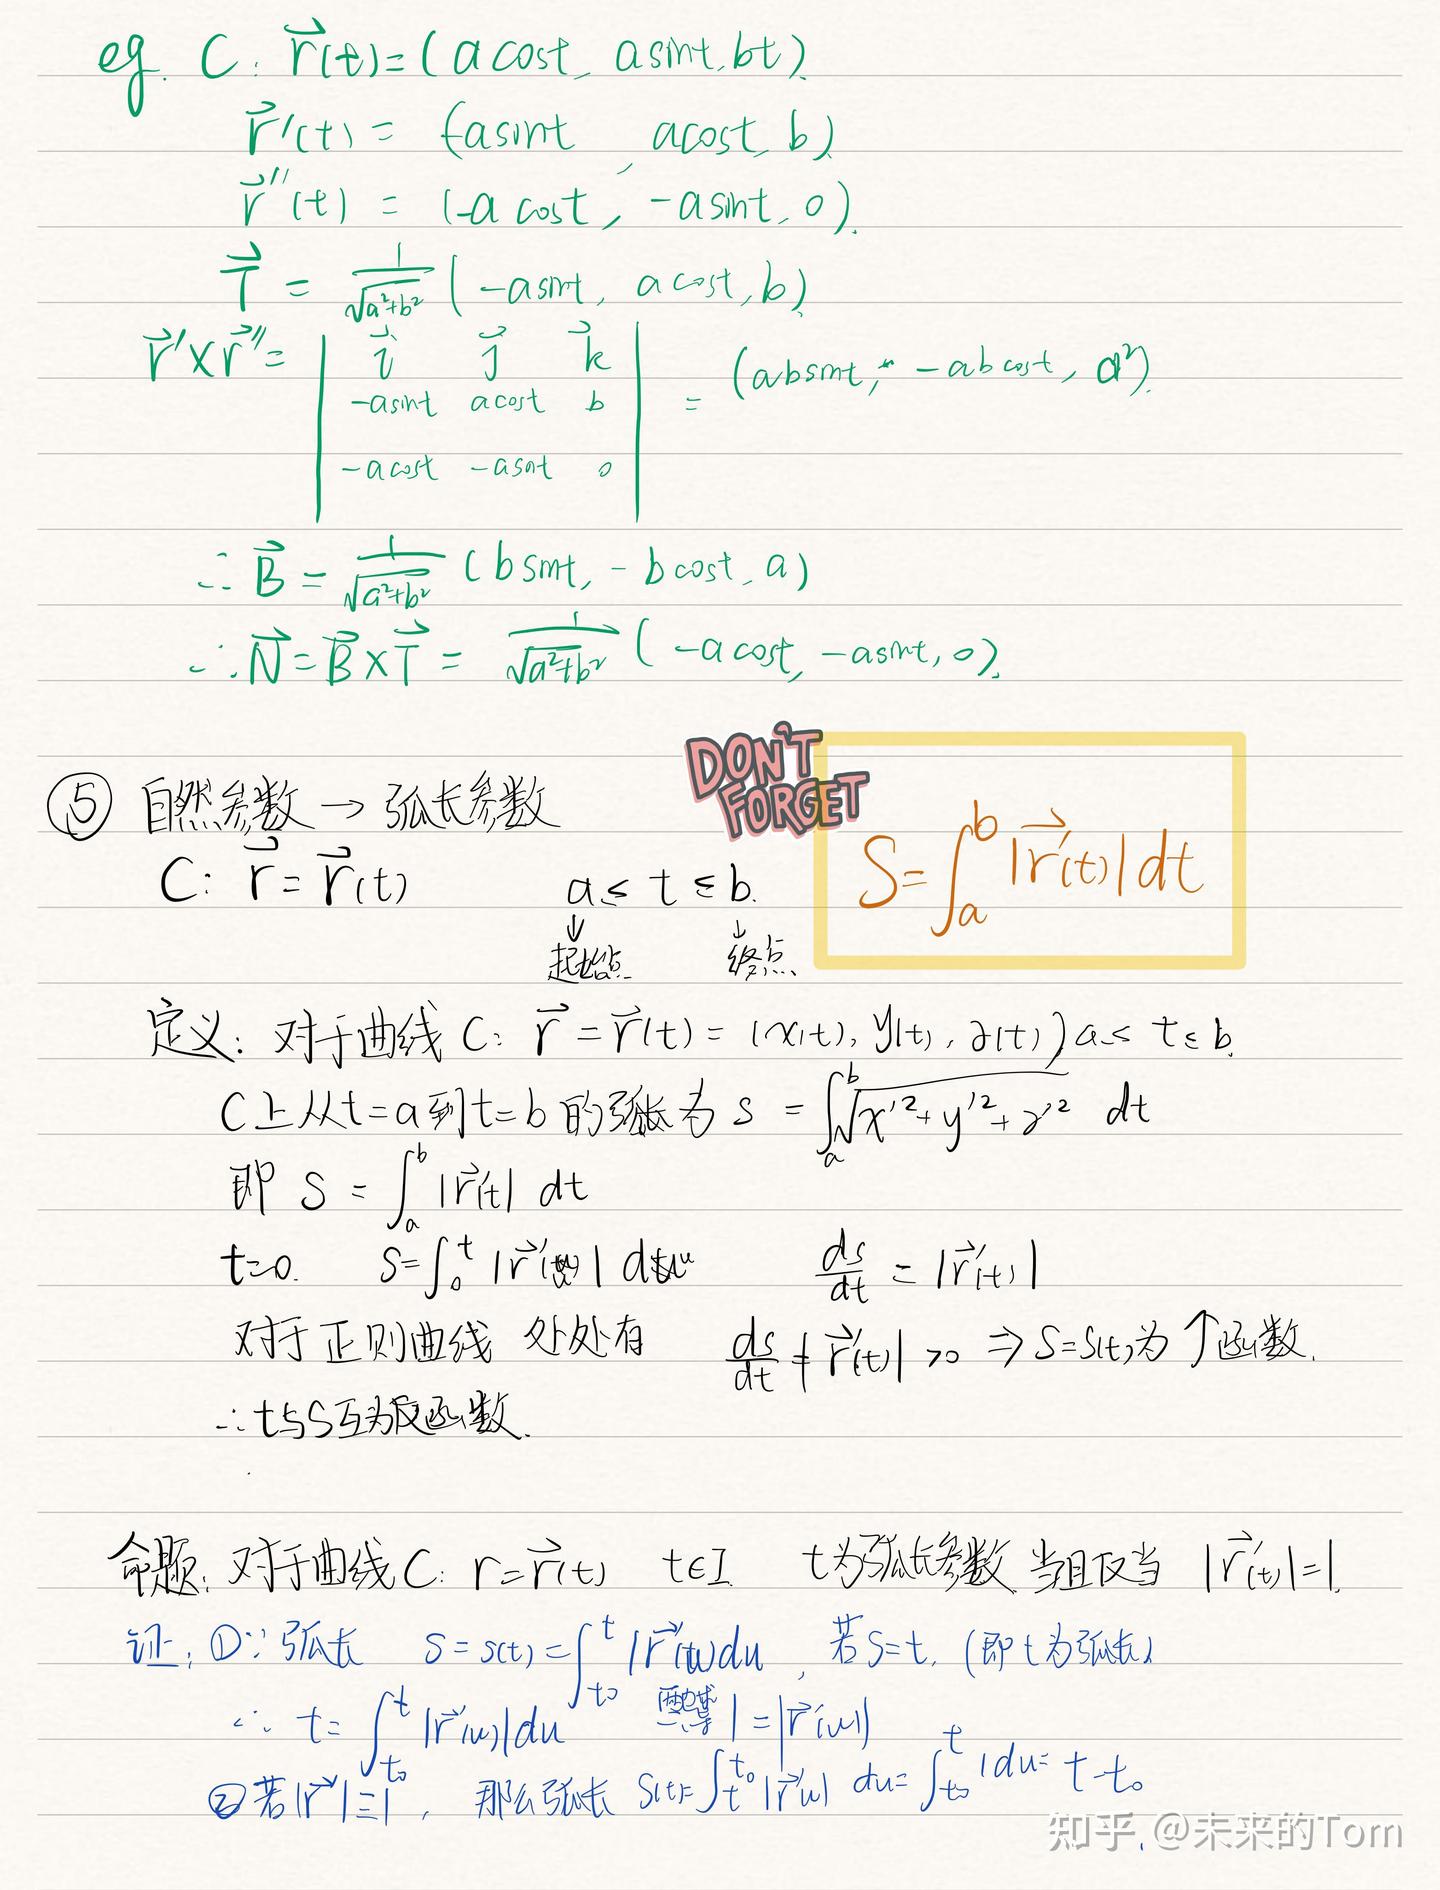 eg. C: r⃗(t)=(acost, asint, bt).
r⃗'(t) = (-asint, acost, b)
r⃗''(t) = (-acost, -asint, 0).
T⃗ = 1/√(a²+b²) (-asint, acost, b)
r⃗'×r⃗'' = | i⃗ j⃗ k⃗ | = (absint, -abcost, a²).
-asint acost b
-acost -asint 0
∴ B⃗ = 1/√(a²+b²) (bsint, -bcost, a)
∴ N⃗ = B⃗×T⃗ = 1/√(a²+b²) (-acost, -asint, 0).
DON'T FORGET
⑤ 自然参数 → 弧长参数
S=∫_a^b |r⃗'(t)| dt
C: r⃗ = r⃗(t) a ≤ t ≤ b.
↓ 起始点 ↓ 终点
定义: 对于曲线 C: r⃗ = r⃗(t) = (x(t), y(t), z(t)) a ≤ t ≤ b.
C上从t=a到t=b的弧长为 s = ∫_a^b √(x'²+y'²+z'²) dt
即 S = ∫_a^b |r⃗'(t)| dt
t=0. S=∫_0^t |r⃗'(u)| du ds/dt = |r⃗'(t)|
对于正则曲线 处处有 ds/dt = |r⃗'(t)| >0 ⇒ S=S(t)为↑函数.
∴ t与S互为反函数.
命题: 对于曲线C: r=r⃗(t) t∈I. t为弧长参数 当且仅当 |r⃗'(t)|=1.
证: ①∵ 弧长 S=S(t)=∫_{t₀}^t |r⃗'(u)|du, 若S=t. (即t为弧长)
∴ t=∫_{t₀}^t |r⃗'(u)|du 两边求导 1=|r⃗'(u)|
②若|r⃗'|≡1, 那么弧长 S(t)=∫_t^{t₀} |r⃗'u| du=∫_{t₀}^t 1du= t-t₀
知乎 @未来的Tom